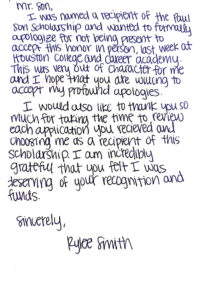 Mr. Son,
I was named a recipient of the Paul
Son Scholarship and wanted to formally
apologize for not being present to
accept this honor in person, last week at
Houston College and career academy.
This was very out of character for me
and I hope that you are willing to
accept my profound apologies.
I would also like to thank you so
much for taking the time to review
each application you recieved and
choosing me as a recipient of this
scholarship. I am incredibly
grateful that you felt I was
deserving of your recognition and
funds.
Sincerely,
Rylee Smith